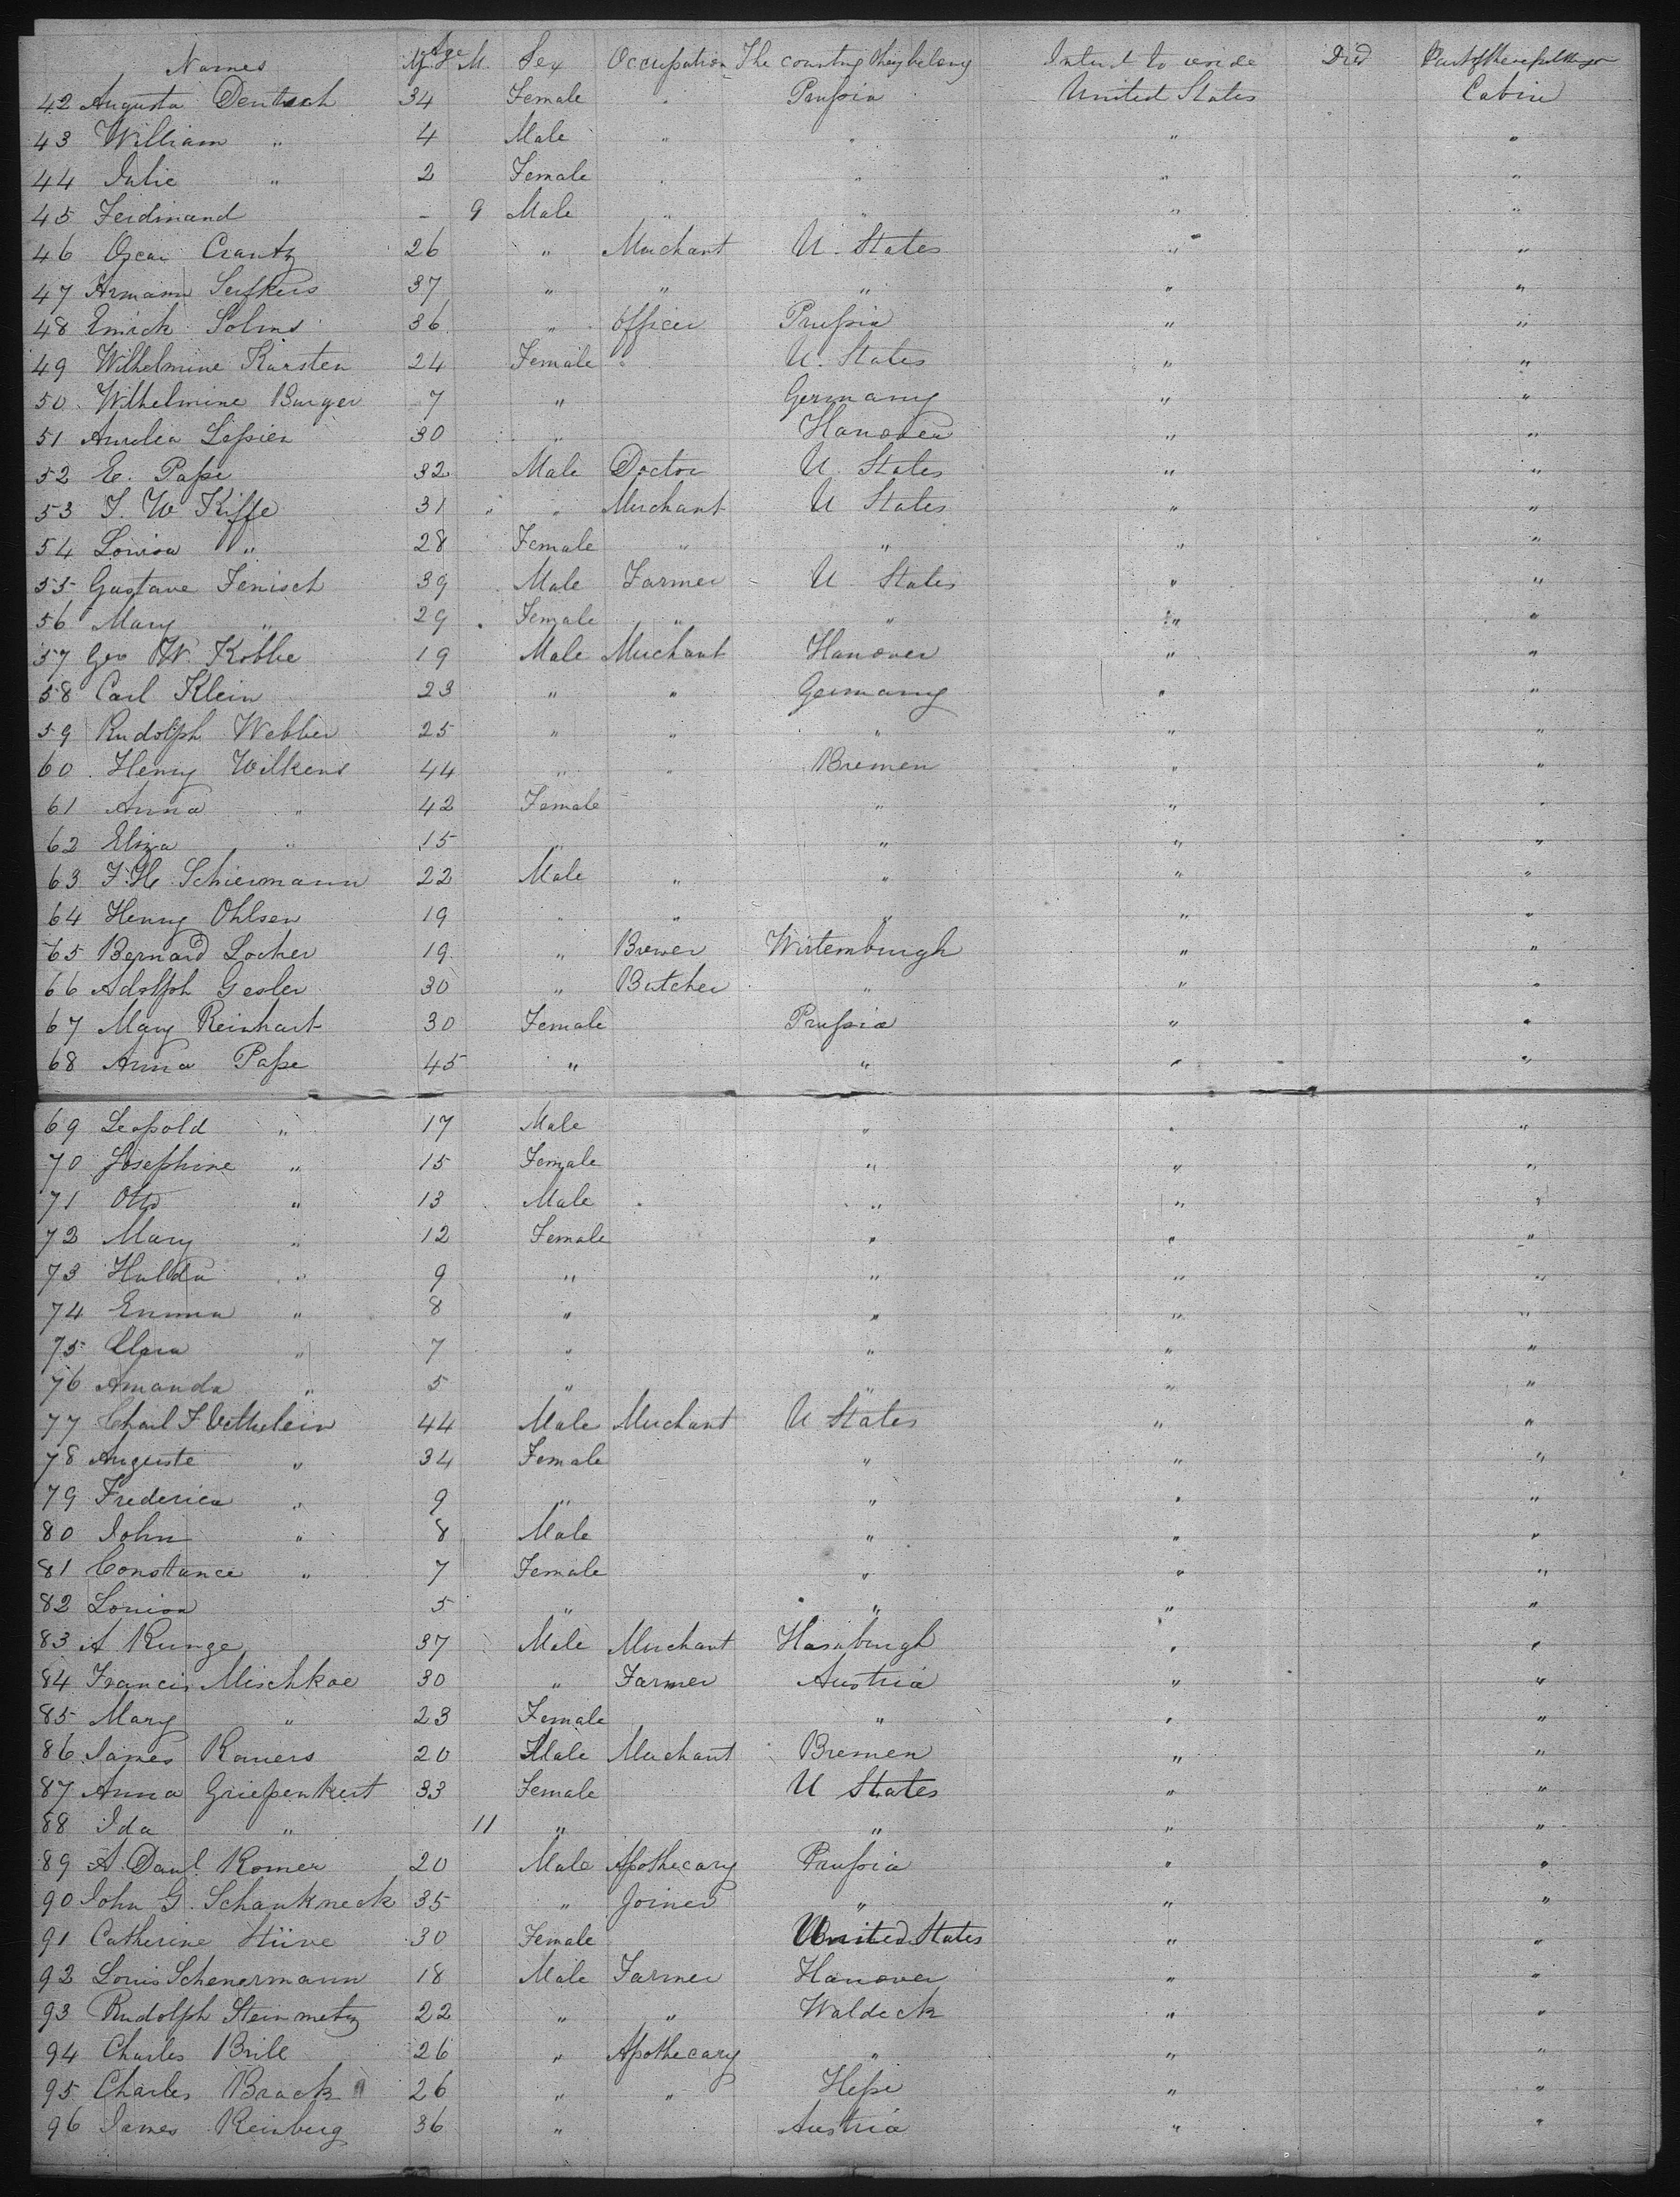 Names Age Y. M. Sex Occupation The country they belong Intent to reside Died Part of the
42 Augusta Deutsch 34 Female " Prussia United States Cabin
43 William " 4 Male " " " "
44 Julie " 2 Female " " " "
45 Ferdinand - 9 Male " " " "
46 Oscar Crantz 26 " Merchant U. States " "
47 Armann 37 " " " " "
48 Emich Solms 36 " Officer Prussia " "
49 Wilhelmine Karsten 24 Female " U. States " "
50 Wilhelmine Burger 7 " Germany " "
51 Aurelia Lessien 30 " Hanover " "
52 E. Pape 32 Male Doctor U. States " "
53 F. W Kiffe 31 " " Merchant U States " "
54 Louisa " 28 Female " " " "
55 Gustave Jenisch 39 Male Farmer U States " "
56 Mary " 29 Female " " " "
57 Geo W. Kobbe 19 Male Merchant Hanover " "
58 Carl Klein 23 " " Germany " "
59 Rudolph Webber 25 " " " " "
60 Henry Wilkens 44 " " Bremen " "
61 Anna " 42 Female " " "
62 Eliza " 15 " " " "
63 F. H. Schiermann 22 Male " " " "
64 Henry Ohlsen 19 " " " " "
65 Bernard Locher 19 " Brewer Wirtemburgh " "
66 Adolph Gesler 30 " Butcher " " "
67 Mary Reinhart 30 Female Prussia " "
68 Anna Pape 45 " " " "
69 Leopold " 17 Male " " "
70 Josephine " 15 Female " " "
71 Otto " 13 Male " " "
72 Mary " 12 Female " " "
73 Hulda " 9 " " " "
74 Emma " 8 " " " "
75 Clara " 7 " " " "
76 Amanda " 5 " " " "
77 Charl F. 44 Male Merchant U States " "
78 Auguste " 34 Female " " "
79 Frederica " 9 " " " "
80 John " 8 Male " " "
81 Constance " 7 Female " " "
82 Louisa 5 " " " "
83 A Runge 37 Male Merchant Hamburgh " "
84 Francis Mischkoe 30 " Farmer Austria " "
85 Mary " 23 Female " " "
86 James Romers 20 Male Merchant Bremen " "
87 Anna Griepenkert 33 Female U States " "
88 Ida " 11 " " " "
89 A. Danl. Romer 20 Male Apothecary Prussia " "
90 John G. Schaukneck 35 " Joiner " " "
91 Catherine Stüve 30 Female United States " "
92 Louis Schenermann 18 Male Farmer Hanover " "
93 Rudolph Steinmetz 22 " " Waldeck " "
94 Charles Brill 26 " Apothecary " " "
95 Charles Brack 26 " " Hesse " "
96 James Reinberg 36 " Austria " "